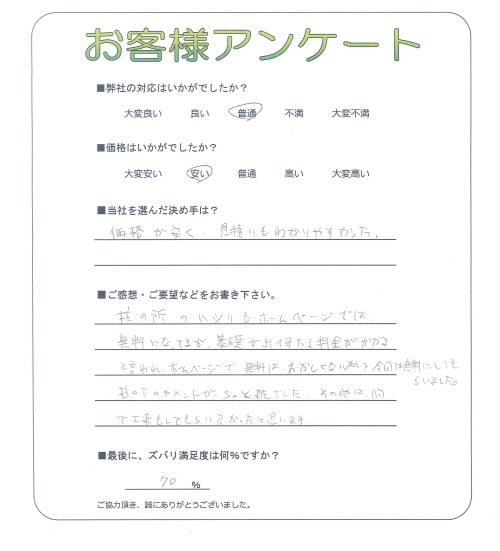 お客様アンケート
■弊社の対応はいかがでしたか？
大変良い 良い 普通 不満 大変不満
■価格はいかがでしたか？
大変安い 安い 普通 高い 大変高い
■当社を選んだ決め手は？
価格が安く、見積りもわかりやすかった。
■ご感想・ご要望などをお書き下さい。
柱の所のハツリもホームページでは、
無料になってるが、基礎が出てきたら料金がかかる
と言われ、ホームページで無料は、おかしくない 今回は無料にしても
らいました。
柱の下のセメントが、ちょっと雑でした。その他は、
で工事もしてもらい良かったと思います
■最後に、ズバリ満足度は何％ですか？
70 ％
ご協力頂き、誠にありがとうございました。